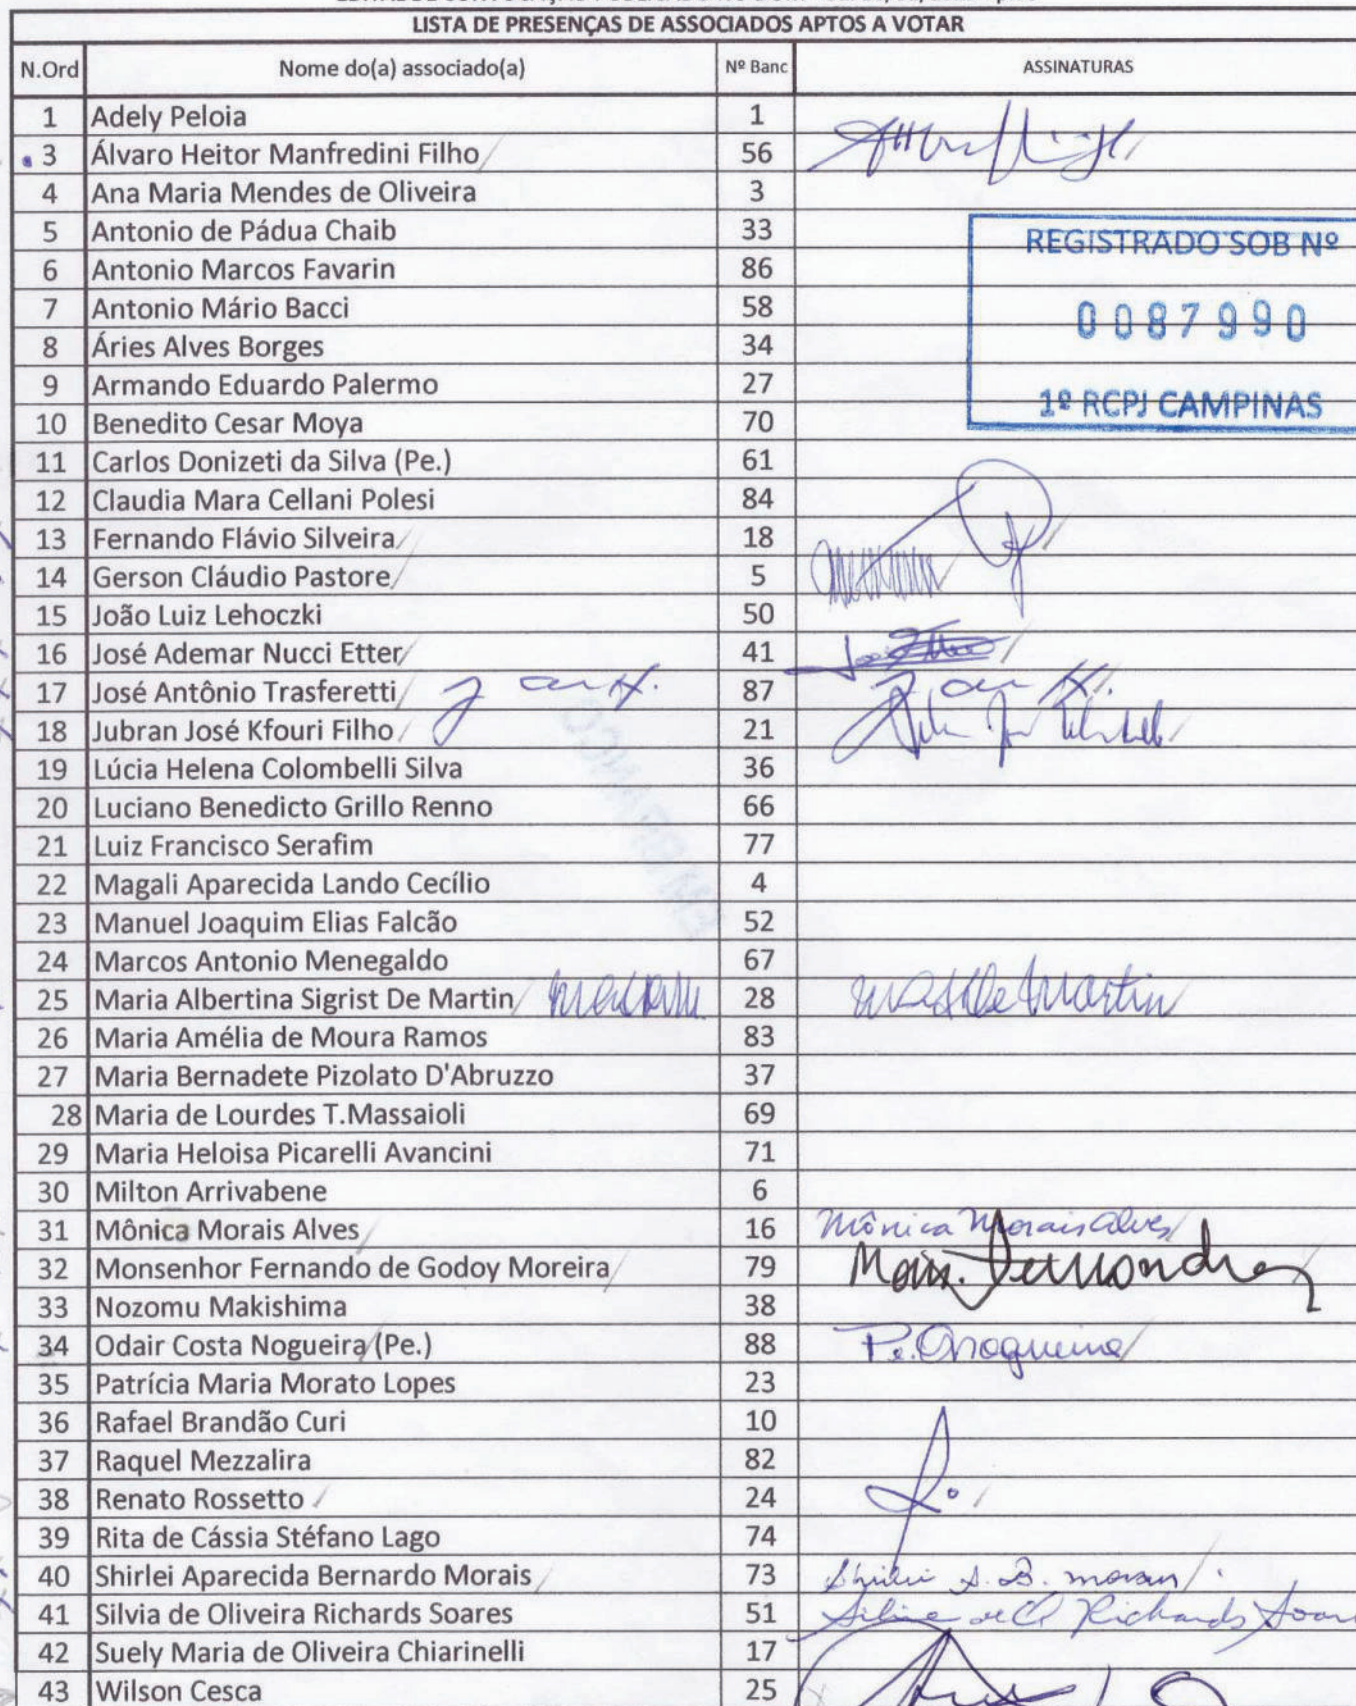 LISTA DE PRESENÇAS DE ASSOCIADOS APTOS A VOTAR
N.Ord Nome do(a) associado(a) Nº Banc ASSINATURAS
1 Adely Peloia 1
3 Álvaro Heitor Manfredini Filho 56
4 Ana Maria Mendes de Oliveira 3
5 Antonio de Pádua Chaib 33
REGISTRADO SOB Nº
6 Antonio Marcos Favarin 86
7 Antonio Mário Bacci 58
0087990
8 Áries Alves Borges 34
9 Armando Eduardo Palermo 27
1º RCPJ CAMPINAS
10 Benedito Cesar Moya 70
11 Carlos Donizeti da Silva (Pe.) 61
12 Claudia Mara Cellani Polesi 84
13 Fernando Flávio Silveira 18
14 Gerson Cláudio Pastore 5
15 João Luiz Lehoczki 50
16 José Ademar Nucci Etter 41
17 José Antônio Trasferetti 87
18 Jubran José Kfouri Filho 21
19 Lúcia Helena Colombelli Silva 36
20 Luciano Benedicto Grillo Renno 66
21 Luiz Francisco Serafim 77
22 Magali Aparecida Lando Cecílio 4
23 Manuel Joaquim Elias Falcão 52
24 Marcos Antonio Menegaldo 67
25 Maria Albertina Sigrist De Martin 28 Martin
26 Maria Amélia de Moura Ramos 83
27 Maria Bernadete Pizolato D'Abruzzo 37
28 Maria de Lourdes T.Massaioli 69
29 Maria Heloisa Picarelli Avancini 71
30 Milton Arrivabene 6
31 Mônica Morais Alves 16 Mônica Morais Alves
32 Monsenhor Fernando de Godoy Moreira 79
33 Nozomu Makishima 38
34 Odair Costa Nogueira (Pe.) 88 Pe. Onogueira
35 Patrícia Maria Morato Lopes 23
36 Rafael Brandão Curi 10
37 Raquel Mezzalira 82
38 Renato Rossetto 24
39 Rita de Cássia Stéfano Lago 74
40 Shirlei Aparecida Bernardo Morais 73 Shirlei A. B. Morais
41 Silvia de Oliveira Richards Soares 51 Silvia de O Richards Soar
42 Suely Maria de Oliveira Chiarinelli 17
43 Wilson Cesca 25